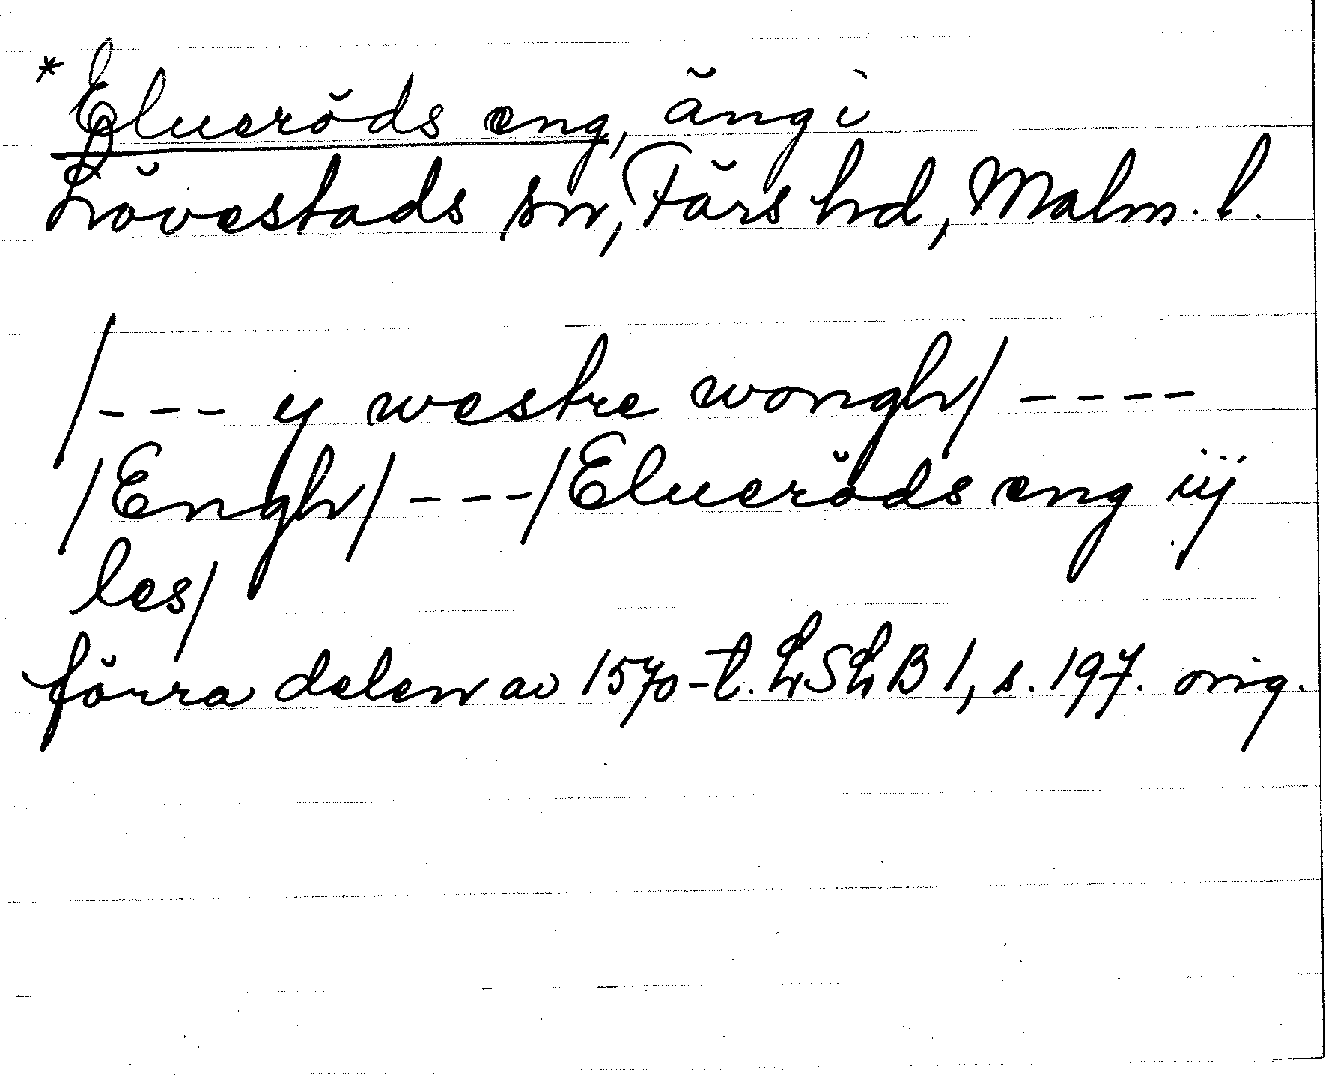 * Elueröds eng, äng i
Lövestads sn, Färs hd, Malm. l.
/--- y westre wongh/ ----
/Engh/ ---/Elueröds eng iij
les/
förra delen av 1570-t. LSLB 1, s. 197. orig.